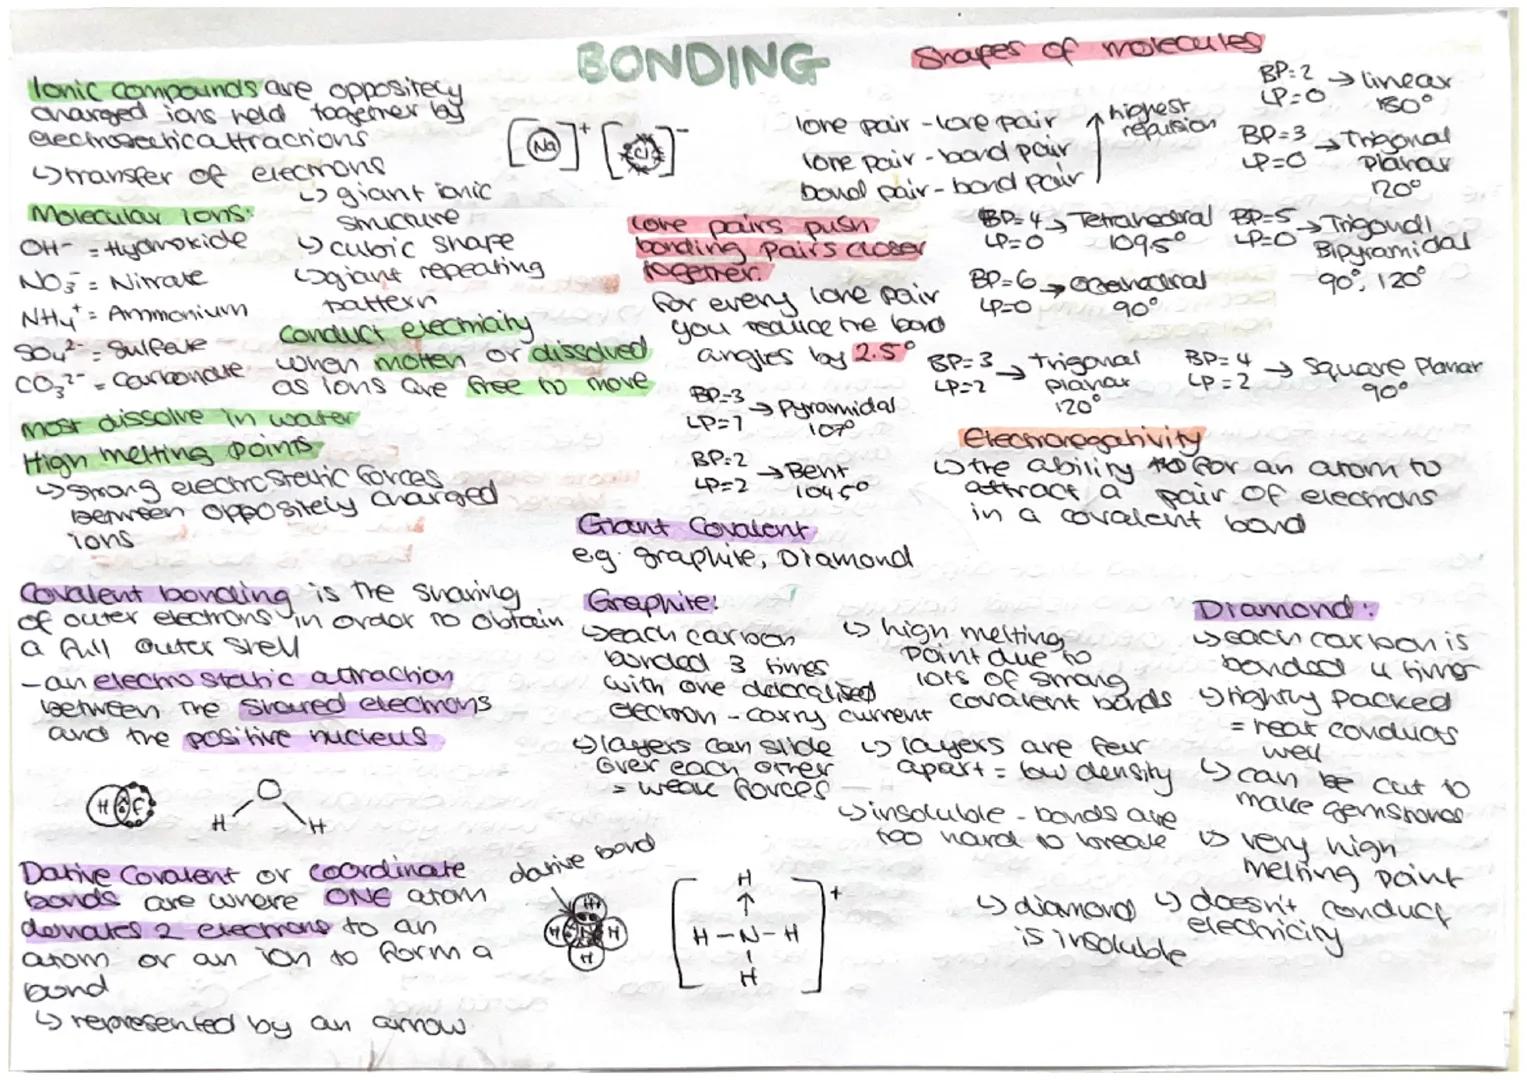 BONDING
Ionic compounds are oppositely
charged ions held together by
electrostatic attractions
↳ transfer of electrons
↳ giant ionic
structure
↳ cubic shape
↳ giant repeating
pattern
[Na]+ [Cl]-
Molecular ions:
OH⁻ = Hydroxide
NO₃⁻ = Nitrate
NH₄⁺ = Ammonium
SO₄²⁻ = Sulfate
CO₃²⁻ = Carbonate
Conduct electricity
when molten or dissolved
as ions are free to move
Most dissolve in water
High melting points
↳ strong electrostatic forces
between oppositely charged
ions
Covalent bonding is the sharing
of outer electrons in order to obtain
a full outer shell
- an electrostatic attraction
between the shared electrons
and the positive nucleus
H F
O
H H
Dative Covalent or coordinate
bonds are where ONE atom
donates 2 electrons to an
atom or an ion to form a
bond
↳ represented by an arrow
dative bond
H
H N H
H
H
↑
H - N - H
H
+
Shapes of molecules
lone pair - lone pair
lone pair - bond pair
bond pair - bond pair
↑ highest
repulsion
BP=2 → linear
LP=0 180°
BP=3 → Trigonal
LP=0 Planar
120°
lone pairs push
bonding pairs closer
together.
for every lone pair
you reduce the bond
angles by 2.5°
BP=4 → Tetrahedral
LP=0 109.5°
BP=5 → Trigonal
LP=0 Bipyramidal
90°, 120°
BP=6 → octahedral
LP=0 90°
BP=3 → Trigonal
LP=2 planar
120°
BP=4 → Square Planar
LP=2 90°
BP=3 → Pyramidal
LP=1 107°
BP=2 → Bent
LP=2 104.5°
Electronegativity
↳ the ability for an atom to
attract a pair of electrons
in a covalent bond
Giant Covalent
e.g. graphite, Diamond
Graphite:
↳ each carbon
bonded 3 times
with one delocalised
electron - carry current
↳ layers can slide
over each other
= weak forces
↳ high melting
point due to
lots of strong
covalent bonds
↳ layers are far
apart = low density
↳ insoluble - bonds are
too hard to break
Diamond:
↳ each carbon is
bonded 4 times
↳ tightly packed
= heat conducts
well
↳ can be cut to
make gemstones
↳ very high
melting point
↳ doesn't conduct
electricity
↳ diamond
is insoluble